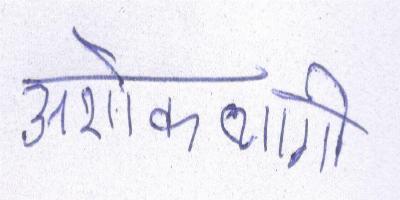 अशोक त्यागी